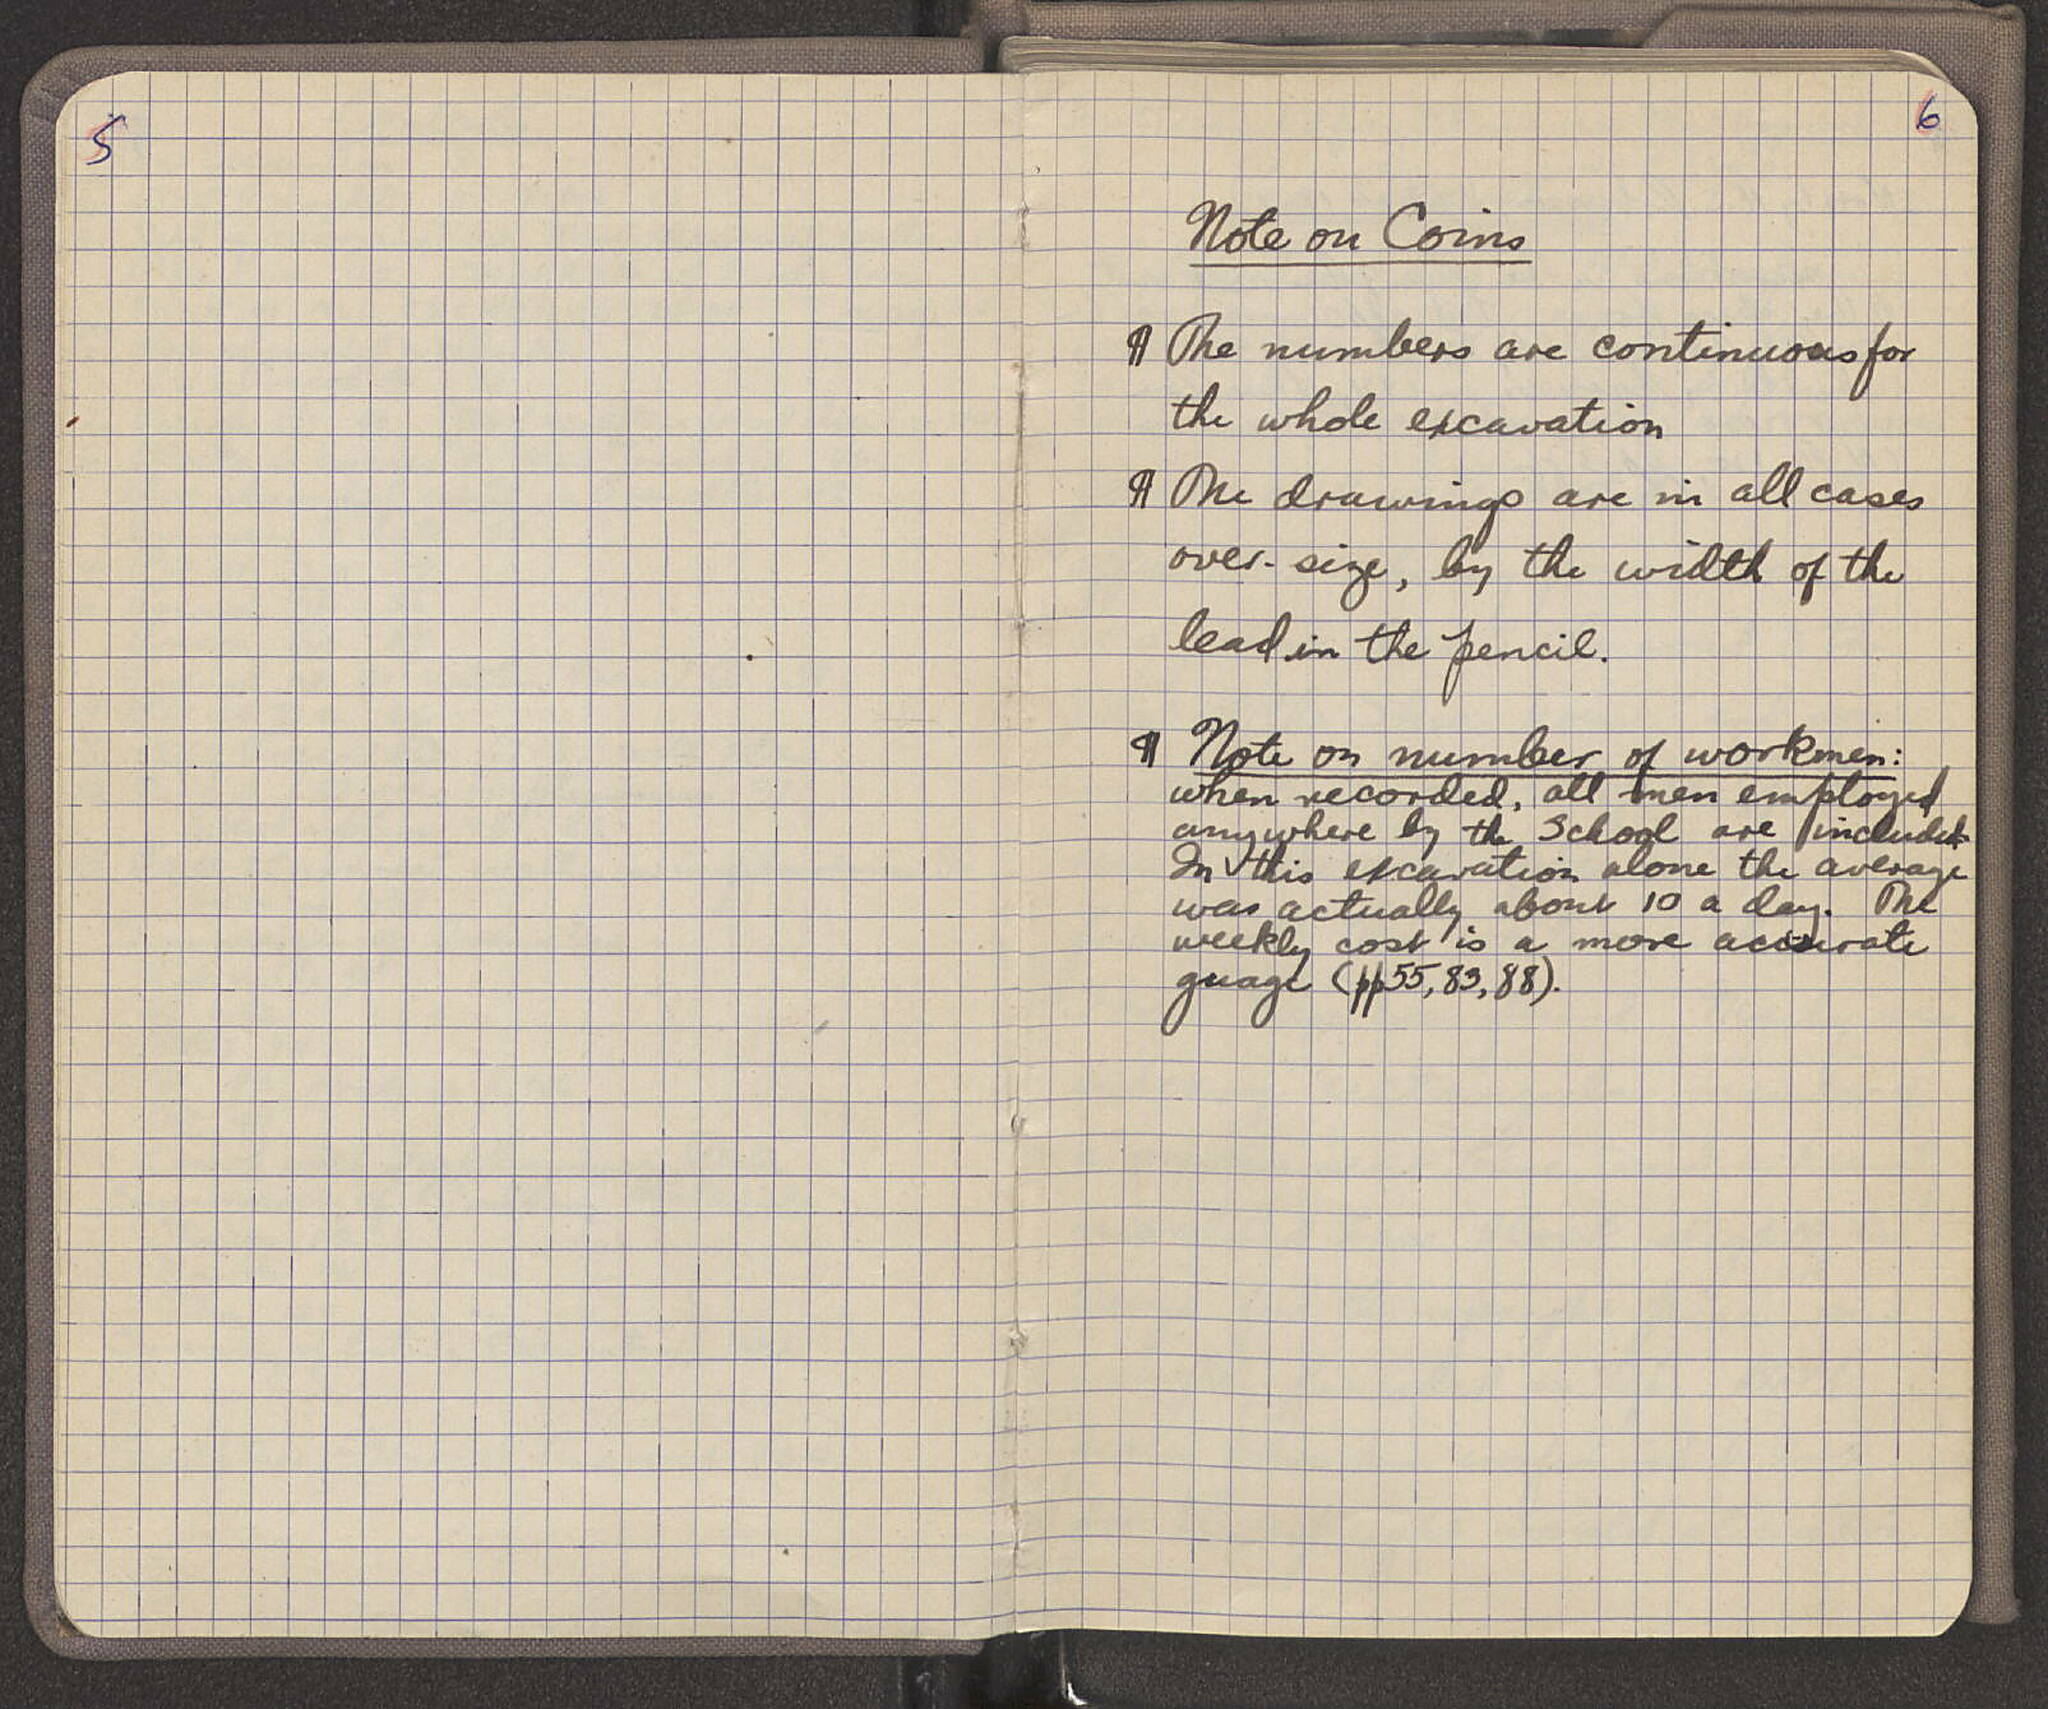 5
6
Note on Coins
¶ The numbers are continuous for
the whole excavation
¶ The drawings are in all cases
over-size, by the width of the
lead in the pencil.
¶ Note on number of workmen:
when recorded, all men employed
anywhere by the School are included.
In this excavation alone the average
was actually about 10 a day. The
weekly cost is a more accurate
guage (pp55, 83, 88).